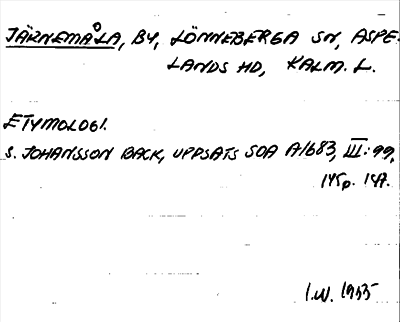 JÄRNEMÅLA, BY, LÖNNEBERGA SN, ASPE-
LANDS HD, KALM. L.
ETYMOLOGI.
S. JOHANSSON BACK, UPPSATS SOA A1683, III: 99,
145 p. 147.
I.W. 1955